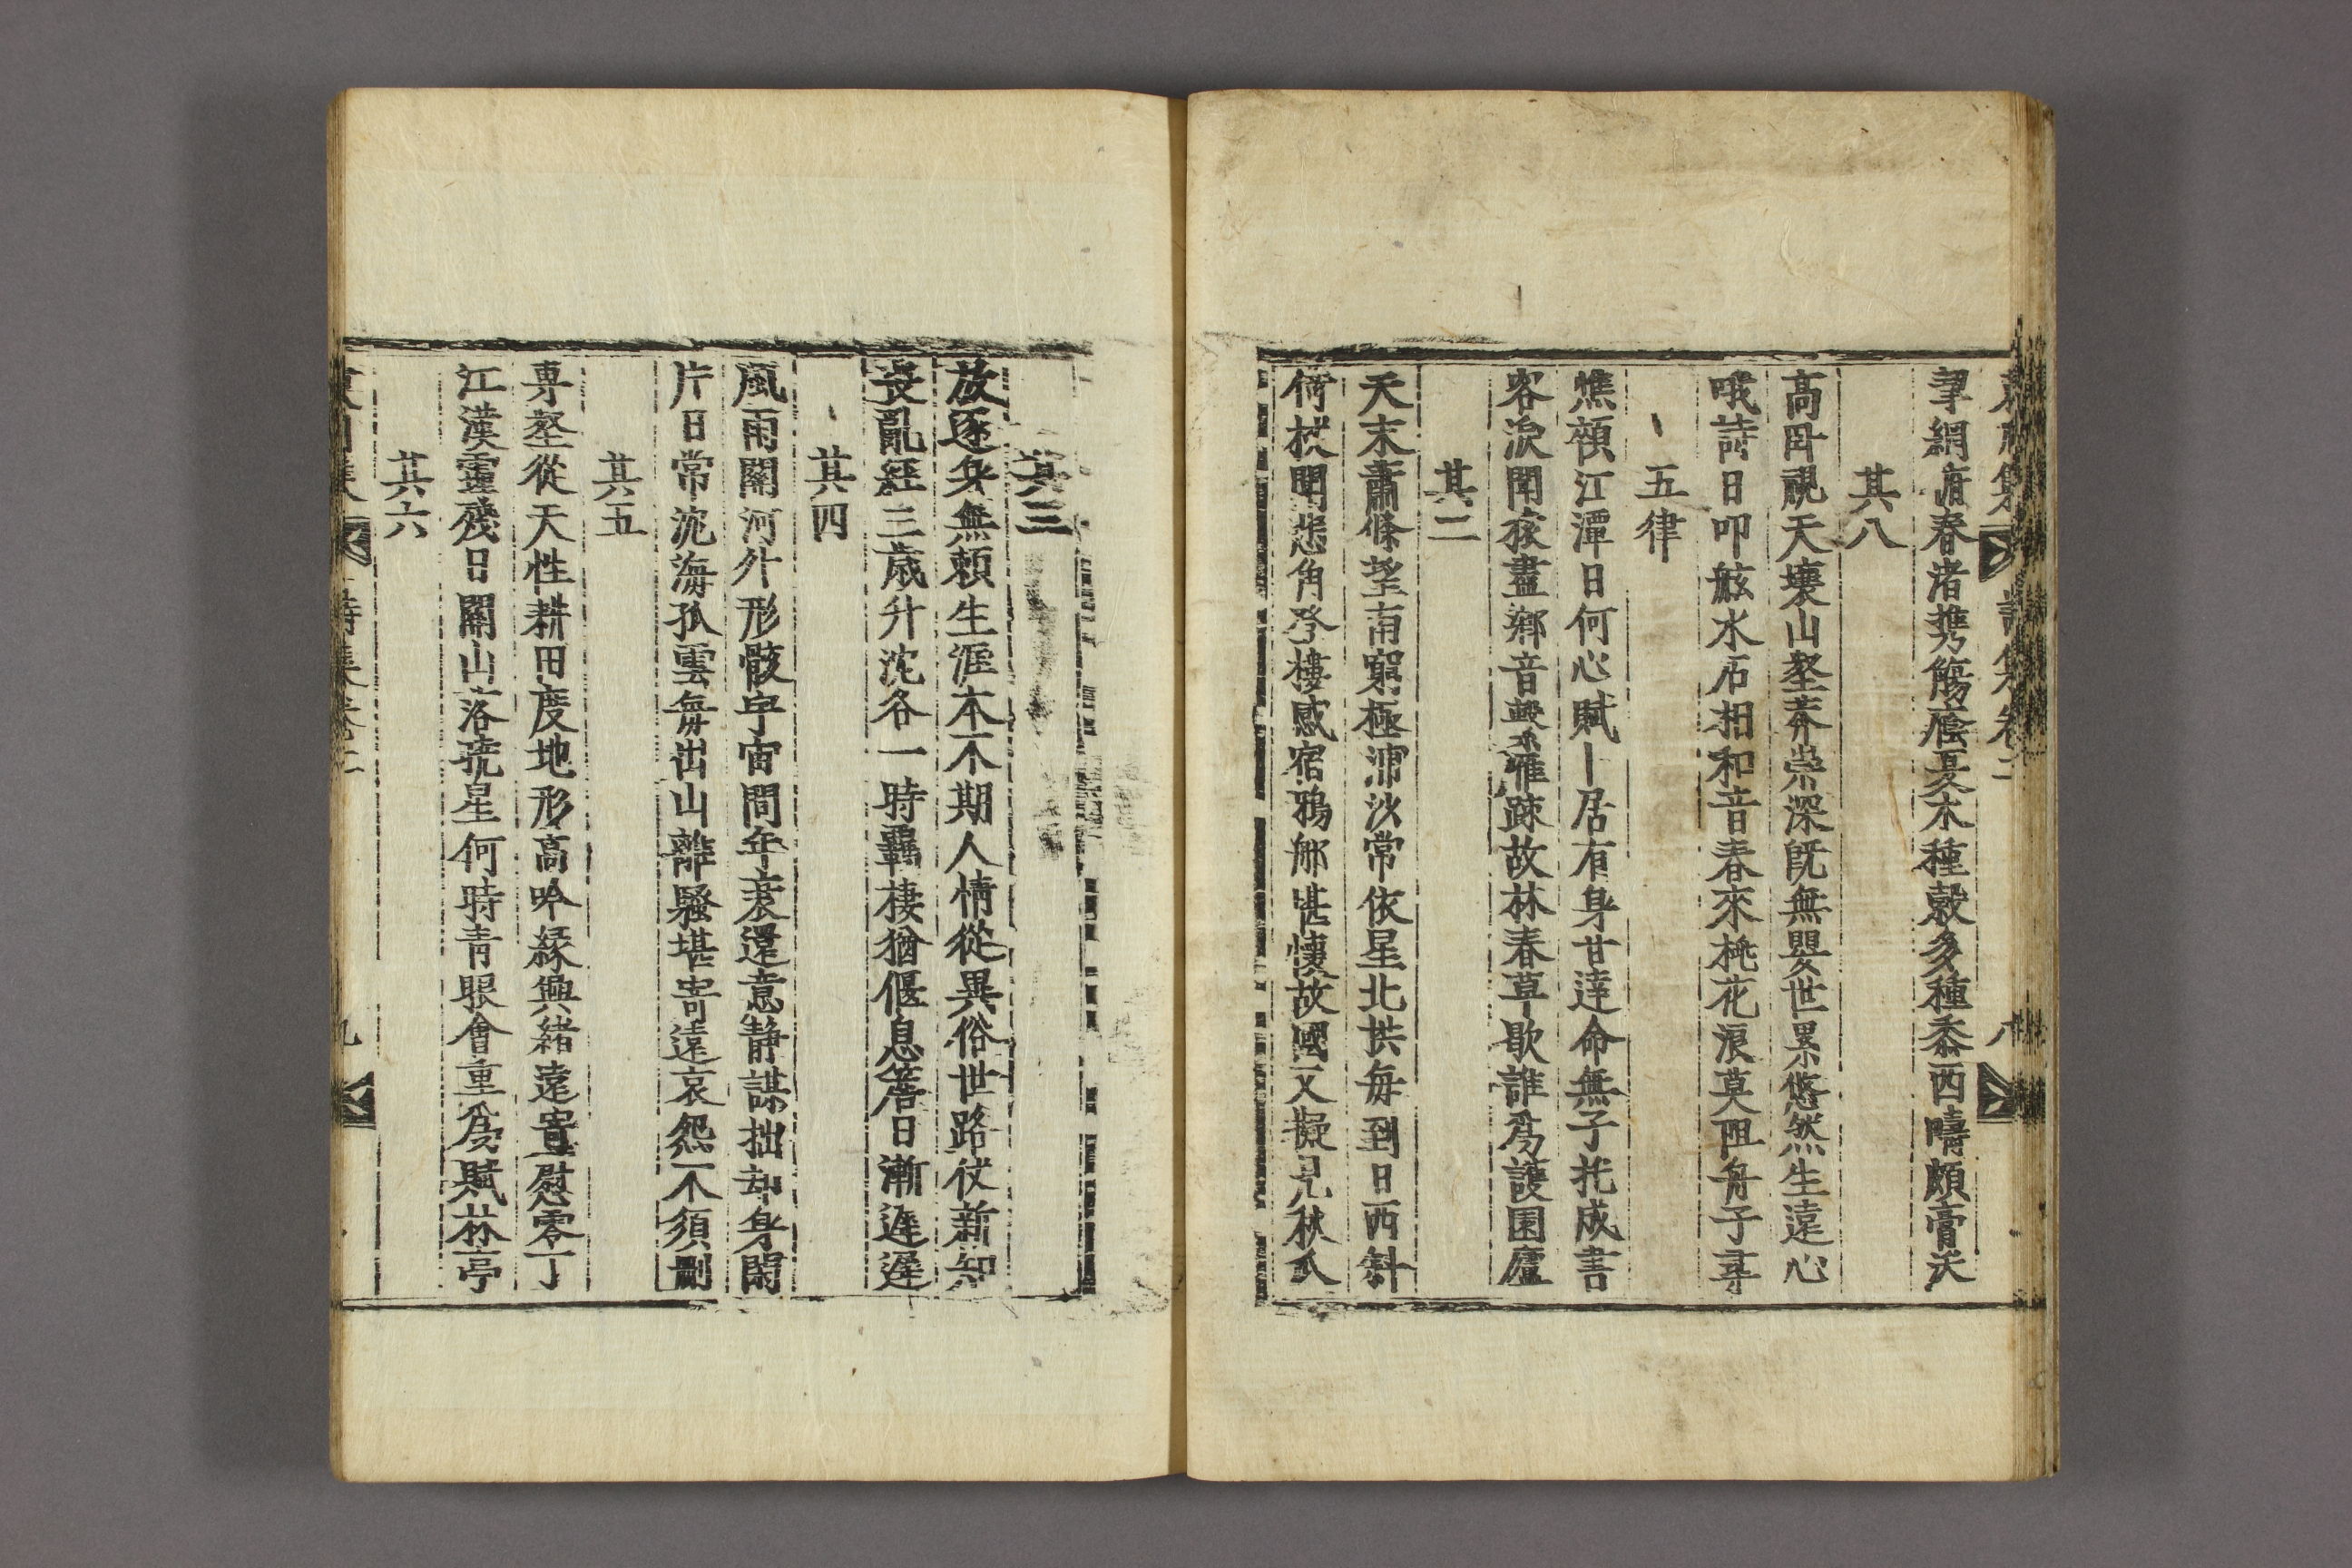 詩集卷二 八
罩網循春渚携觴蔭夏木種穀多種黍西疇頗膏沃
其八
高卧視天壤山壑莽崇深旣無嬰世累悠然生遠心
哦詩日叩舷水石相和音春來桃花浪莫阻舟子尋
五律
憔顇江潭日何心賦卜居有身甘達命無子托成書
客淚開荻盡鄉音轂雁踈故林春草歇誰爲護園廬
其二
天末蕭條望南窮極浦沙常依星北拱每到日西斜
倚杖聞悲角登樓感宿鴉那堪懷故國又擬見秋瓜
其三
放逐身無賴生涯本不期人情從異俗世路仗新知
喪亂經三歲升沈各一時羈棲猶偃息簷日漸遲遲
其四
風雨關河外形骸宇宙間年衰還意靜謀拙却身閑
片日常沈海孤雲每出山離騷堪寄遠哀怨不須刪
其五
專壑從天性耕田度地形高吟緣興緖遠寘慰零丁
江漢靈殘日關山落琉星何時靑眼會重爲賦林亭
其六
詩集卷二 九